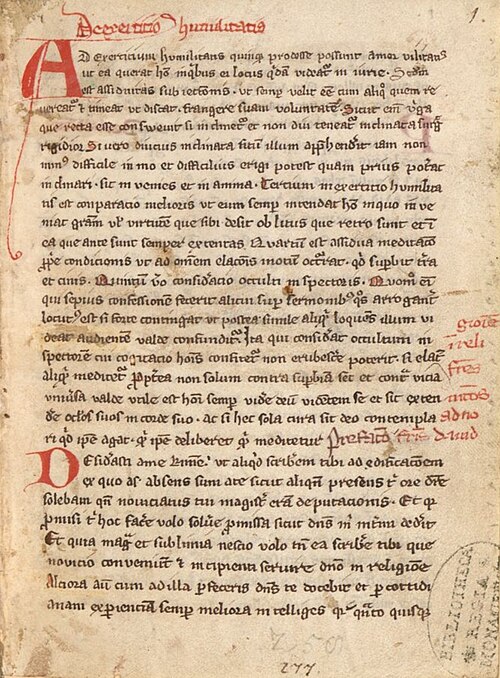 De exercitio humilitatis
1.
Ad Exercicium humilitatis quinque prodesse possunt amor vilitatis
ut ea querat homo in quibus ei locus quidam videatur in iurie. Secundum
est assiduitas subiectionis. ut semper velit esse cum aliquo quem re
vereatur et timeat ut discat frangere suam voluntatem. Sicut enim virga
que recta esse consuevit si inclinetur et non diu teneatur inclinata surgit
rigidior Si vero diucius inclinata situm illum apprehenderit iam non
minus difficile in imo et difficilius erigi potest quam prius poterat
inclinari. sit in venies et in anima. Tertium in exercitio humilita
tis est conparatio melioris ut eum semper intendat homo in quo in ve
niat gratiam vel virtutem que sibi desit oblitus que retro sunt et in
ea que ante sunt semper extentus. Quartum est assidua meditatio
proprie condicionis ut ad omnem elacionis motum occurrat. quid superbit terra
et cinis. Quintum vero consideratio occulti inspectoris. Quoniam enim
qui sepius confessionem fecerit alicui super sermonibus quos arroganter
locutus est si forte contingat ut postea simile aliquid loquens illum vi
deat audientem valde confunditur. Ita qui considerat occultum in
spectorem cui cogitatio hominis confitetur non erubescere poterit. si elatum
aliquid meditetur. Propterea non solum contra superbiam sed et contra vicia
universa valde utile est homini semper videre deum videntem se et sic exten
dere oculos suos in corde suo. ac si hec sola cura sit deo contempla
ri quid ipse agat. quid ipse deliberet quid meditetur Prefatio fratris david
ad no
Desiderasti a me karissime. ut aliquid scriberem tibi ad edificationem
ex quo a te absens sum a te sicut aliquando presens tibi ore dicere
solebam quando noviciatus tui magister eram deputacionis. Et quia
promisi tibi hoc facere volo solvere promissa sicut dominus mihi in mentem dederit
Et quia magna et sublimia nescio volo tamen ea scribere tibi que
novicio conveniunt et incipienti servire domino in religione
Alciora autem cum ad illa profeceris dominus te docebit et per cottidi
anam experienciam semper meliora intelliges quia quanto quisque
277.
BIBLIOTHECA
REGIA
MONACENSIS